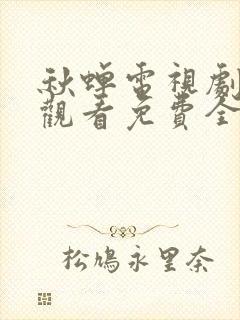 秋蟬電視劇
觀看免費全
松鳩永里奈